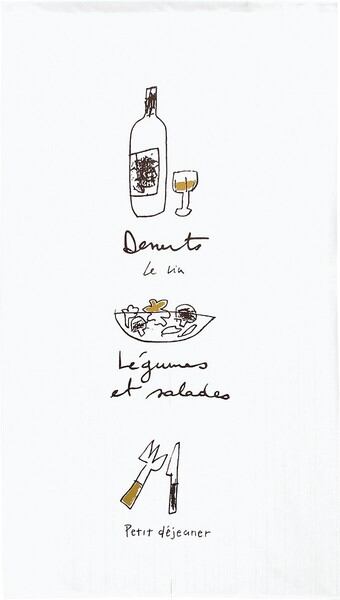 Desserts
Le vin
Légumes
et salades
Petit déjeuner